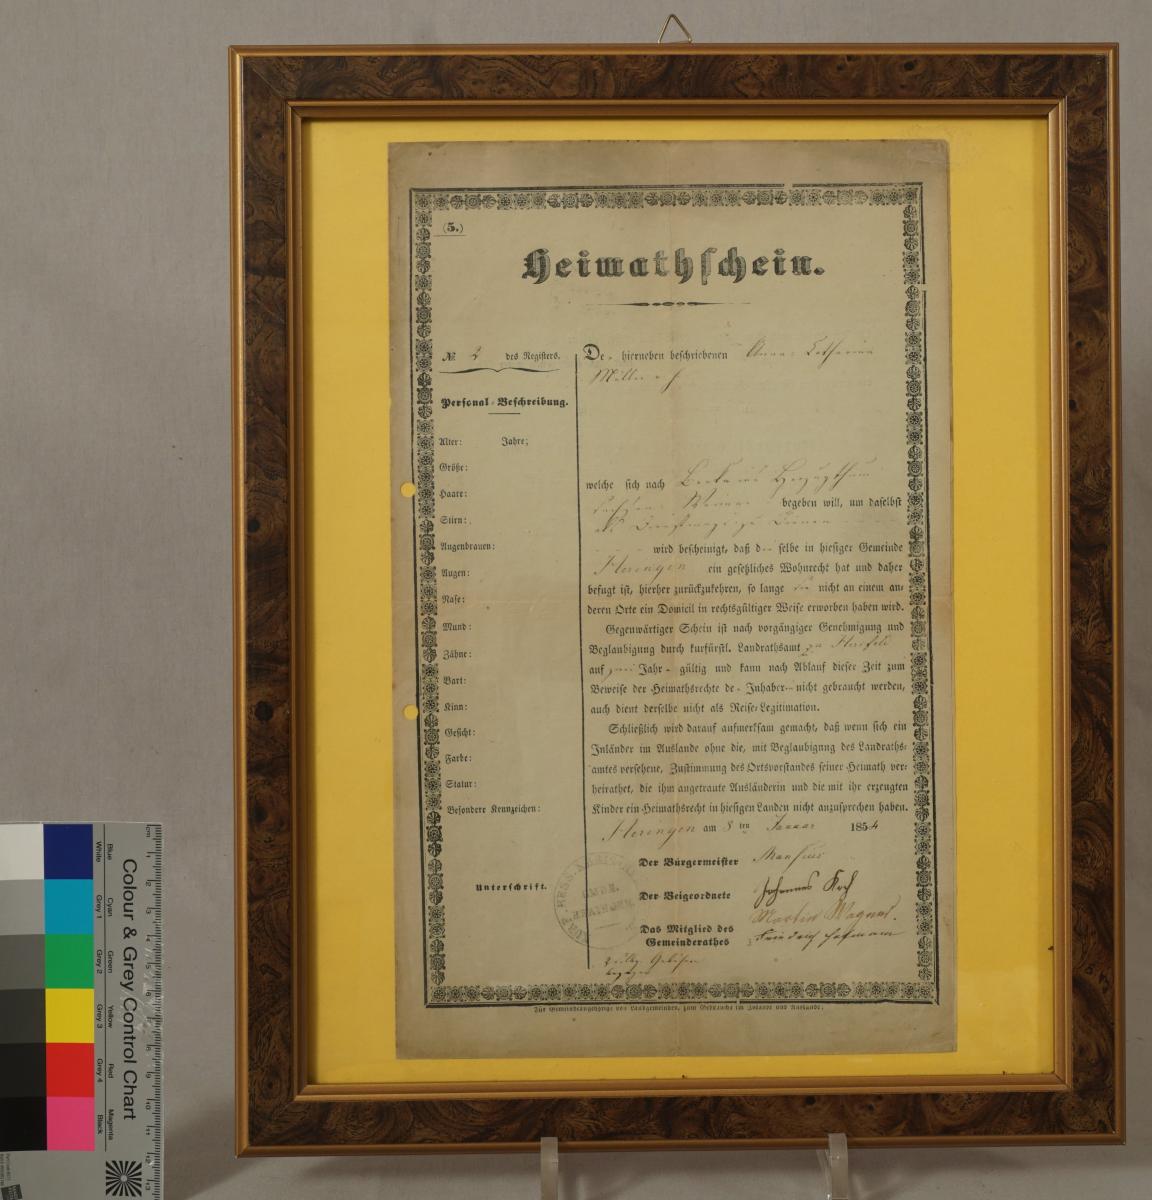 (5.)
Heimathschein.
№ 2 des Registers.
Personal-Beschreibung.
Alter: Jahre;
Größe:
Haare:
Stirn:
Augenbrauen:
Augen:
Nase:
Mund:
Zähne:
Bart:
Kinn:
Gesicht:
Farbe:
Statur:
Besondere Kennzeichen:
Unterschrift.
De hierneben beschriebenen Anna Catharina
welche sich nach
begeben will, um daselbst
wird bescheinigt, daß d selbe in hiesiger Gemeinde
Heringen ein gesetzliches Wohnrecht hat und daher
befugt ist, hierher zurückzukehren, so lange sie nicht an einem an-
deren Orte ein Domicil in rechtsgültiger Weise erworben haben wird.
Gegenwärtiger Schein ist nach vorgängiger Genehmigung und
Beglaubigung durch kurfürstl. Landrathsamt zu Hersfeld
auf zwei Jahr gültig und kann nach Ablauf dieser Zeit zum
Beweise der Heimathsrechte de Inhaber nicht gebraucht werden,
auch dient derselbe nicht als Reise-Legitimation.
Schließlich wird darauf aufmerksam gemacht, daß wenn sich ein
Inländer im Auslande ohne die, mit Beglaubigung des Landraths-
amtes versehene, Zustimmung des Ortsvorstandes seiner Heimath ver-
heirathet, die ihm angetraute Ausländerin und die mit ihr erzeugten
Kinder ein Heimathsrecht in hiesigen Landen nicht anzusprechen haben.
Heringen am 8 ten Januar 1854
Der Bürgermeister
Der Beigeordnete Johannes Koch
Martin Wagner.
Das Mitglied des
Gemeinderathes
Friedrich Hofmann
Für Gemeindeangehörige von Landgemeinden, zum Gebrauche im Inlande und Auslande.
Colour & Grey Control Chart
Blue Cyan Green Yellow Red Magenta
White Grey 1 Grey 2 Grey 3 Grey 4 Black
cm 1 2 3 4 5 6 7 8 9 10 11 12 13